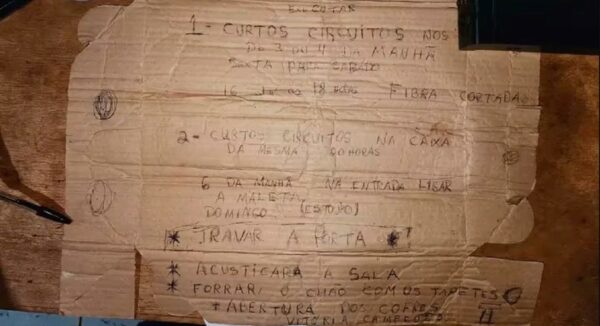 EXECUTAR
1 - CURTOS CIRCUITOS NOS
DO 3 OU 4 DA MANHÃ
SEXTA PARA SABADO
16 às 18 horas FIBRA CORTADA
2 - CURTOS CIRCUITOS NA CAIXA
DA MESMA HORAS
6 DA MANHÃ NA ENTRADA LIGAR
A MALETA
DOMINGO (ESTUDO)
* TRAVAR A PORTA *!
* ACUSTICARÁ A SALA
* FORRAR O CHÃO COM OS TAPETES
* ABERTURA DOS COFRES
VITORIA